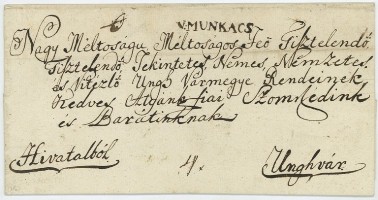 V. MUNKACS
Nagy Méltoságu, Méltoságos, Feö Tisztelendő
Tisztelendő Tekintetes Nemes, Nemzetes
és Vitézlő Ungv Vármegye Rendeinek
Kedves Atyánkfiai Szomszédink
és Barátinknak
Hivatalból
Unghvár